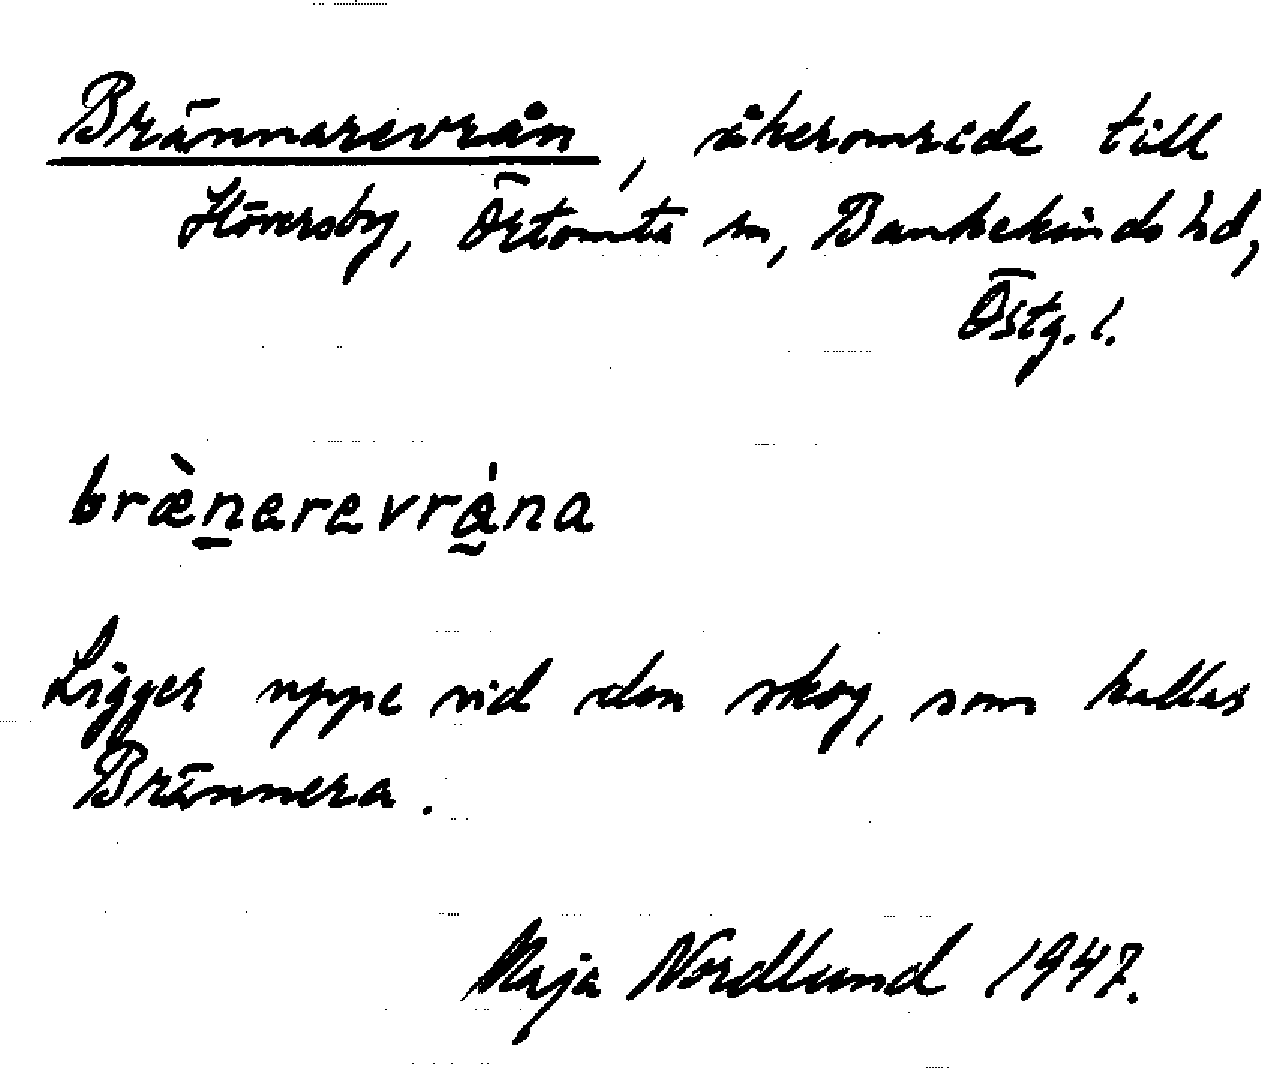 Brännarevrån, åkerområde till
Höversby, Östomta sn, Bankekinds hd,
Östg. l.
bræ̀n̲aravrǻna
Ligger uppe vid den skog, som kallas
Brännera.
Maja Nordlund 1947.